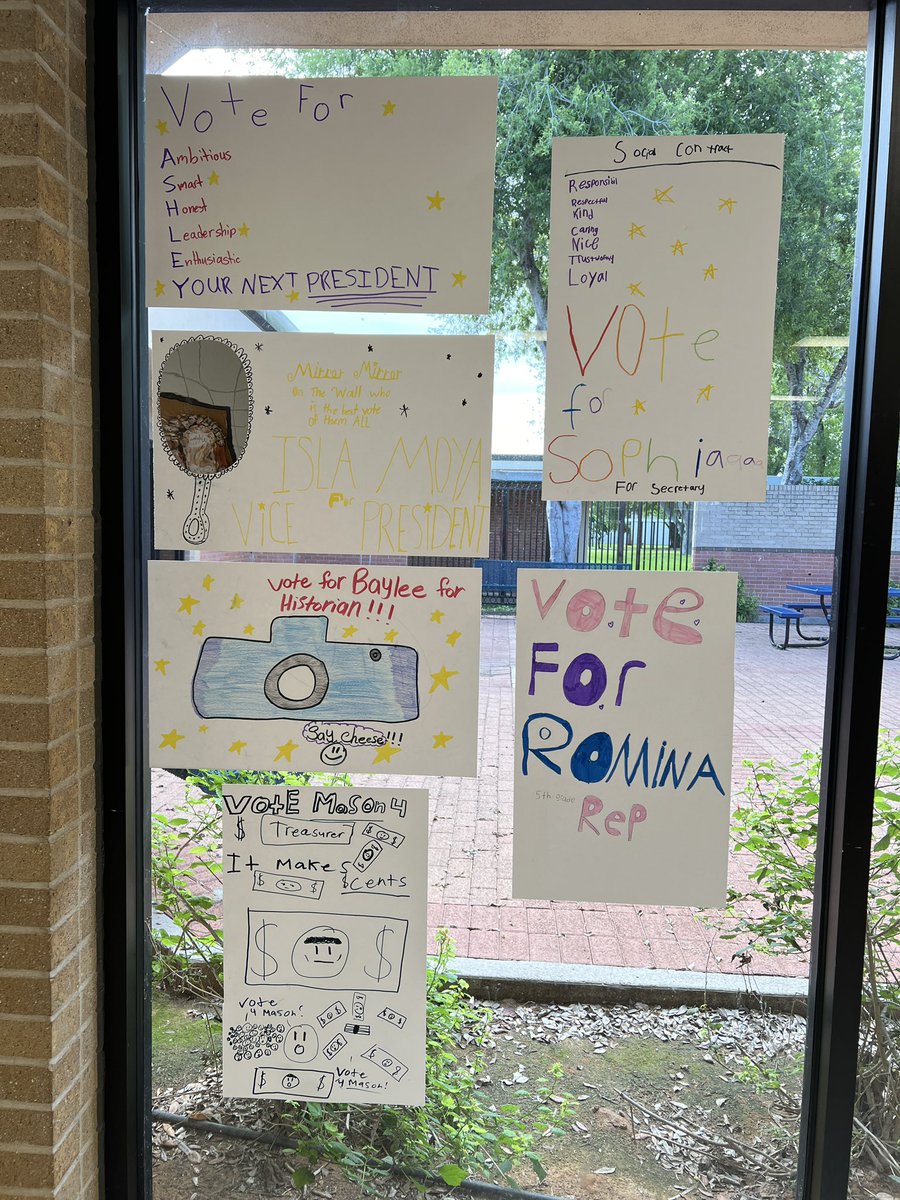 Vote For
Ambitious
Smart
Honest
Leadership
Enthusiastic
YOUR NEXT PRESIDENT
Mirror Mirror
On The Wall who
is the best vote
of them All
ISLA MOYA
For
VICE PRESIDENT
Vote for Baylee for
Historian!!!
Say Cheese!!!
VOTE Mason 4
$ Treasurer
It Makes
$Cents
$ $
Vote
4 Mason!
Vote
4 Mason!
Social Contract
Responsibl
Respectful
Kind
Caring
Nice
Loyal
Vote
for
Sophiaaaa
For Secretary
Vote
For
ROMINA
5th grade
Rep